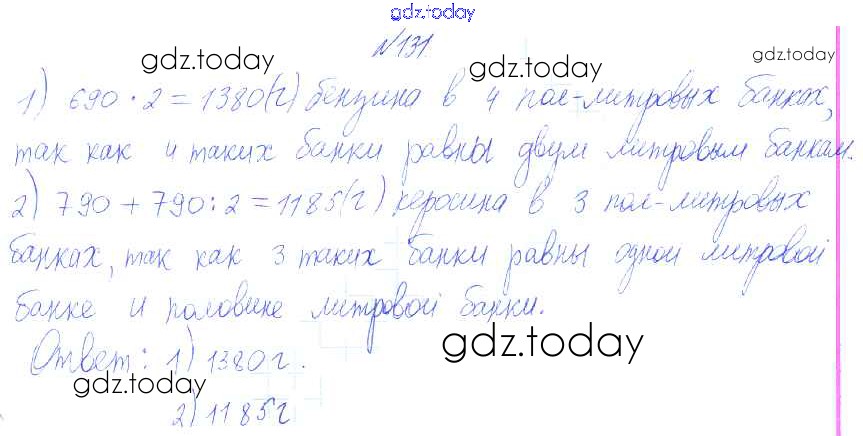 gdz.today
№131.
gdz.today gdz.today
1) 690 · 2 = 1380(г) бензина в 4 пол-литровых банках,
так как 4 таких банки равны двум литровым банкам.
2) 790 + 790 : 2 = 1185(г) керосина в 3 пол-литровых
банках, так как 3 таких банки равны одной литровой
банке и половине литровой банки.
gdz.today
Ответ: 1) 1380 г.
gdz.today
2) 1185 г
gdz.today